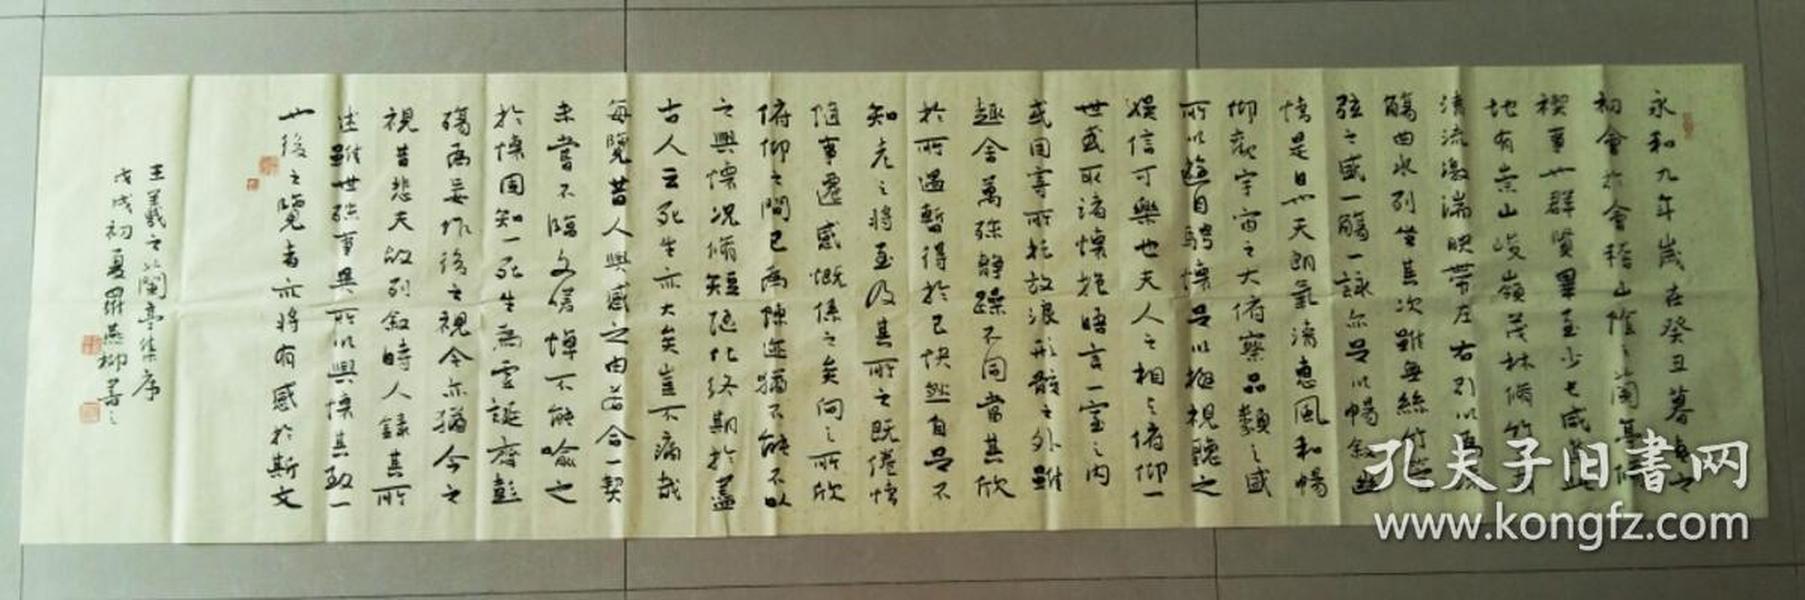 永和九年歲在癸丑暮春之
初會於會稽山陰之蘭亭脩
禊事也群賢畢至少長咸集此
地有崇山峻嶺茂林脩竹又有
清流激湍映帶左右引以為流
觴曲水列坐其次雖無絲竹管
弦之盛一觴一詠亦足以暢敘幽
情是日也天朗氣清惠風和暢
仰觀宇宙之大俯察品類之盛
所以遊目騁懷足以極視聽之
娛信可樂也夫人之相與俯仰一
世或取諸懷抱晤言一室之內
或因寄所托放浪形骸之外雖
趣舍萬殊靜躁不同當其欣
於所遇暫得於己快然自足不
知老之將至及其所之既倦情
隨事遷感慨係之矣向之所欣
俯仰之間已為陳迹猶不能不以
之興懷況脩短隨化終期於盡
古人云死生亦大矣豈不痛哉
每覽昔人興感之由若合一契
未嘗不臨文嗟悼不能喻之
於懷固知一死生為虛誕齊彭
殤為妄作後之視今亦猶今之
視昔悲夫故列敘時人錄其所
述雖世殊事異所以興懷其致一
也後之覽者亦將有感於斯文
王羲之蘭亭集序
戊戌初夏 燕柳書
孔夫子旧書网
www.kongfz.com